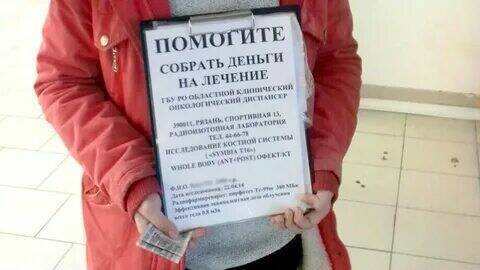 ПОМОГИТЕ
СОБРАТЬ ДЕНЬГИ
НА ЛЕЧЕНИЕ
ГБУ РО ОБЛАСТНОЙ КЛИНИЧЕСКИЙ
ОНКОЛОГИЧЕСКИЙ ДИСПАНСЕР
390011, РЯЗАНЬ, СПОРТИВНАЯ 13,
РАДИОИЗОТОПНАЯ ЛАБОРАТОРИЯ
ТЕЛ. 44-66-78
ИССЛЕДОВАНИЕ КОСТНОЙ СИСТЕМЫ
(«SYMBIA T16»)
WHOLE BODY (ANT+POST) ОФЕКТ/КТ
Ф.И.О.
Дата исследования: 22.04.14
Радиофармпрепарат: пирфотех Tc-99m 340 МБк
Эффективная эквивалентная доза облучения
всего тела 0.8 мЗв